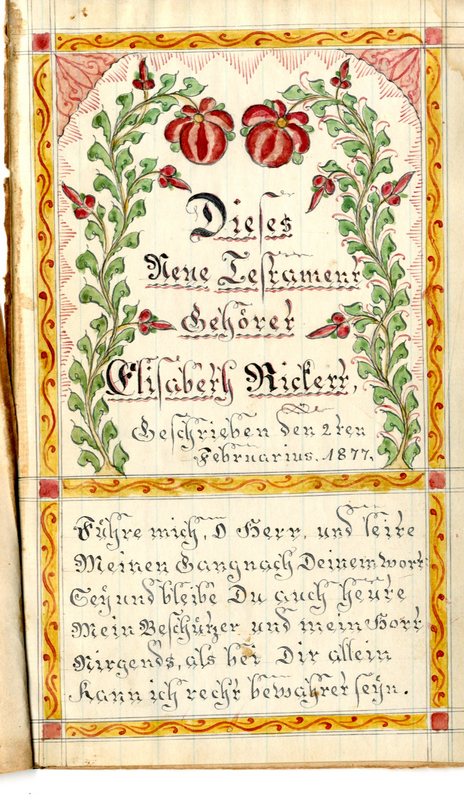 Dieses
Neue Testament
Gehöret
Elisabeth Rickert,
Geschrieben den 2ten
Februarius, 1877.
Führe mich, O Herr, und leite
Meinen Gang nach Deinem wort
Sey und bleibe Du auch heute
Mein Beschützer und mein Hort
Nirgends, als bei Dir allein
Kann ich recht bewahret seyn.